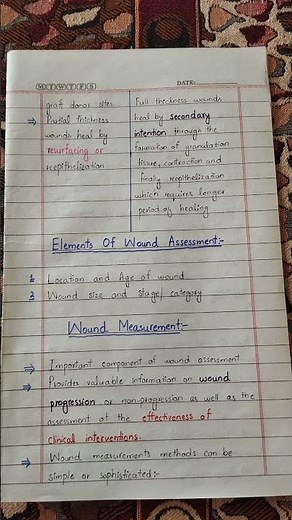 M T W T F S
DATE:
graf donor sites.
⇒ Partial thickness
wounds heal by
resurfacing or
reepithelization
Full thickness wounds
heal by secondary
intention through the
formation of granulation
tissue, contraction and
finally reepithelization
which requires longer
period of healing
Elements Of Wound Assessment:-
1 Location and Age of wound
2 Wound size and stage/category
Wound Measurement:-
⇒ Important component of wound assessment
⇒ Provides valuable information on wound
progression or non-progression as well as the
assessment of the effectiveness of
clinical interventions.
⇒ Wound measurements methods can be
simple or sophisticated:-